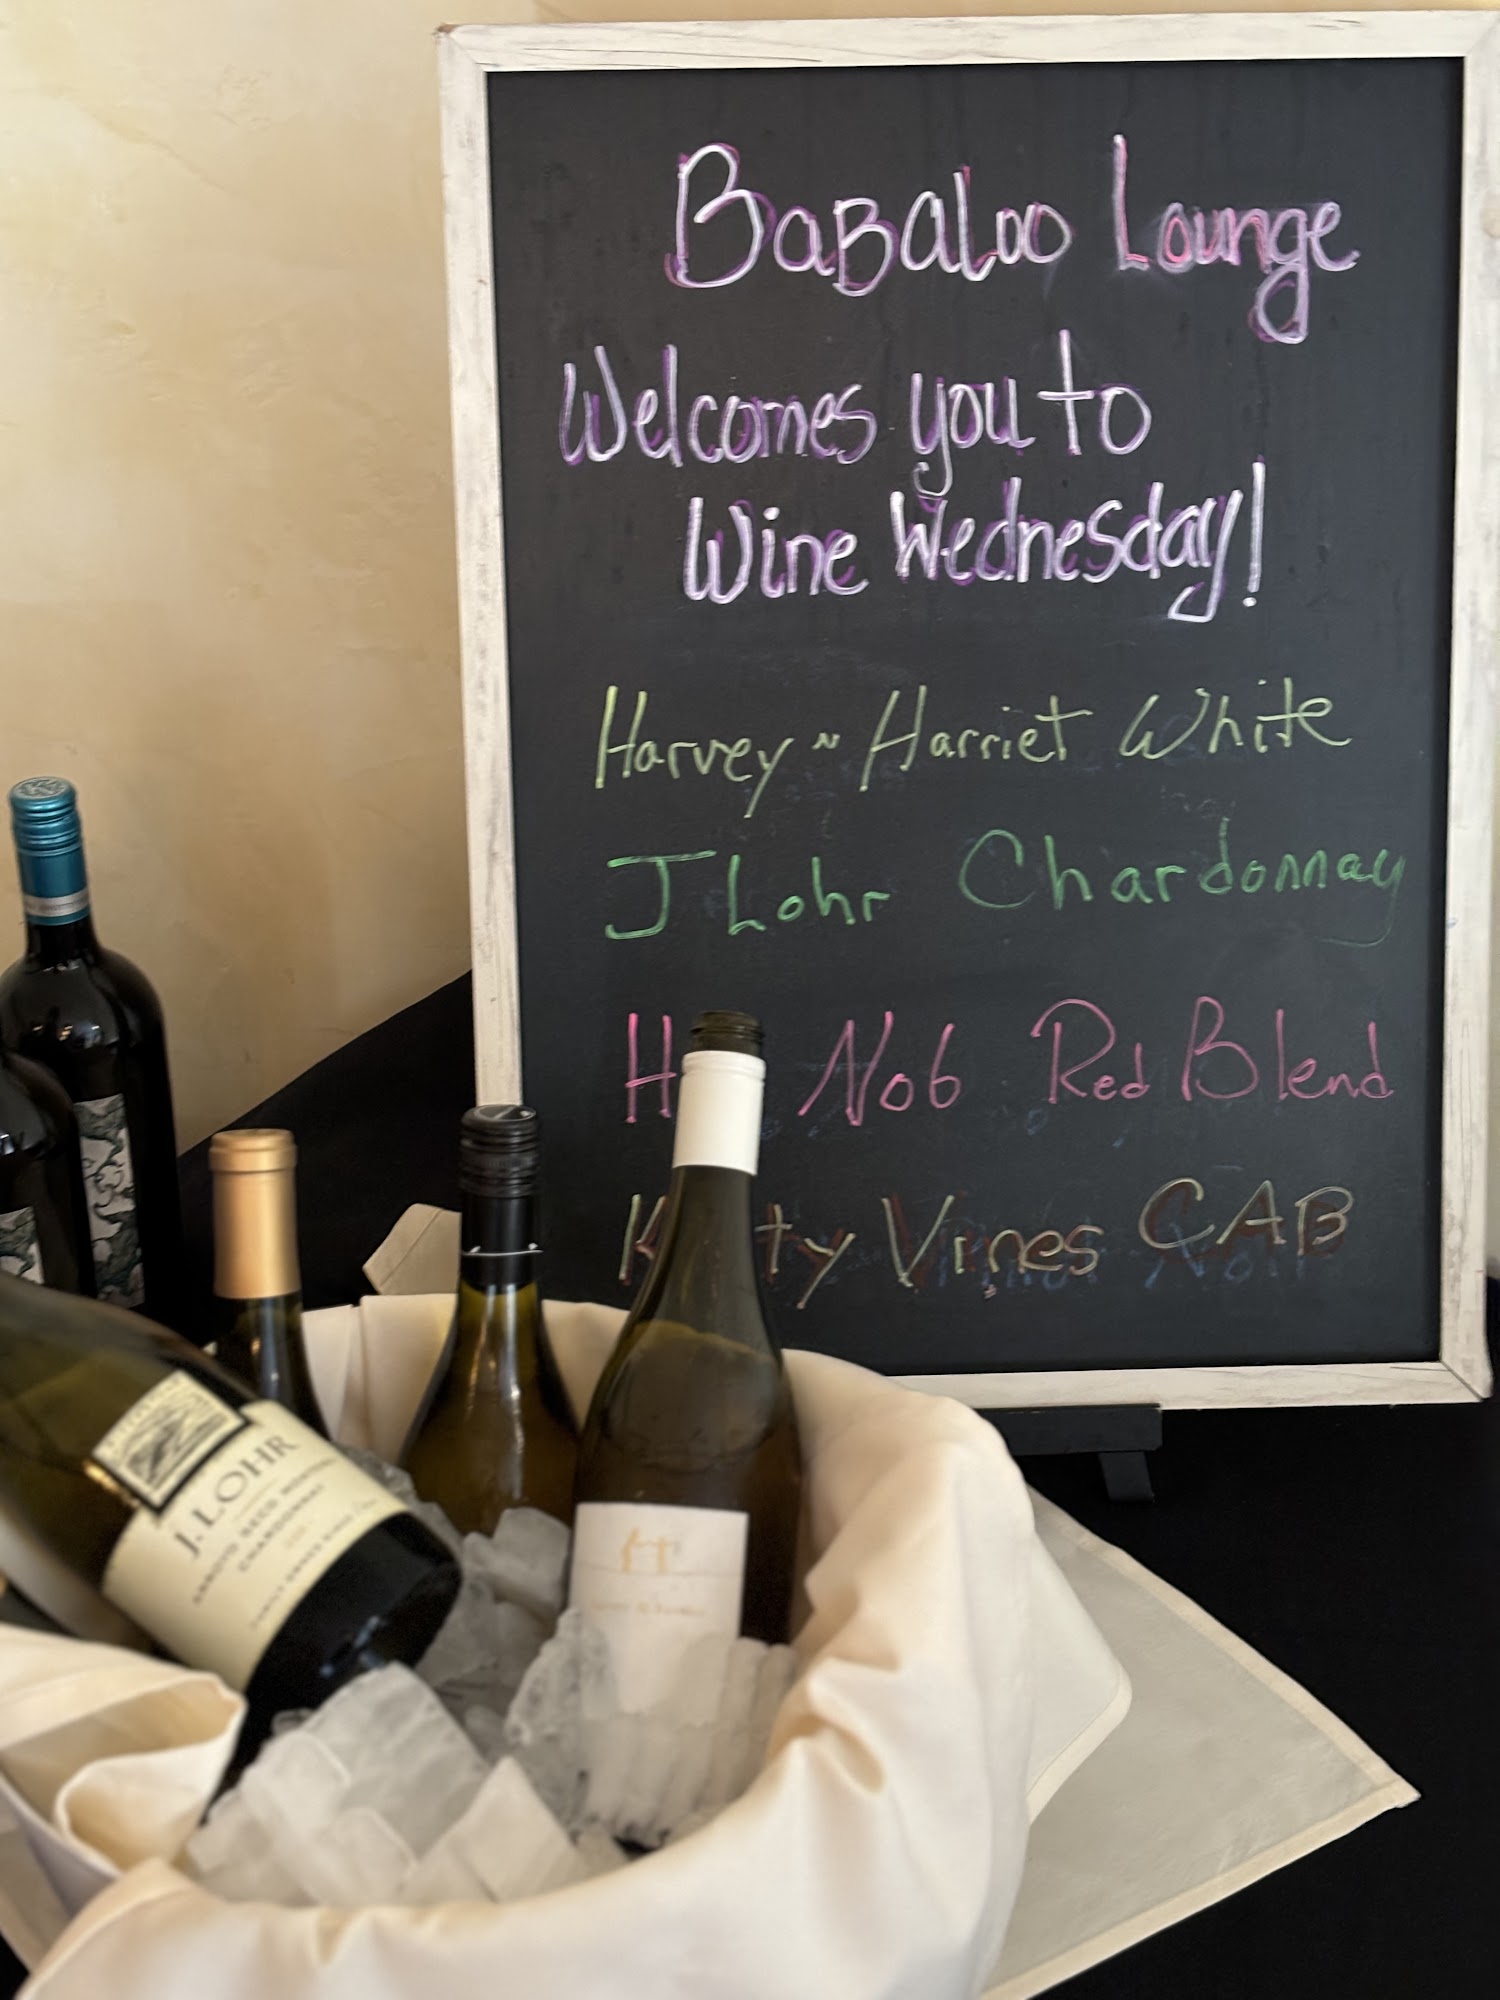 BaBaLoo Lounge
Welcomes you to
Wine Wednesday!
Harvey ~ Harriet White
J Lohr Chardonnay
Nob Red Blend
Vines CAB
J. LOHR
ARROYO SECO MONTEREY
CHARDONNAY